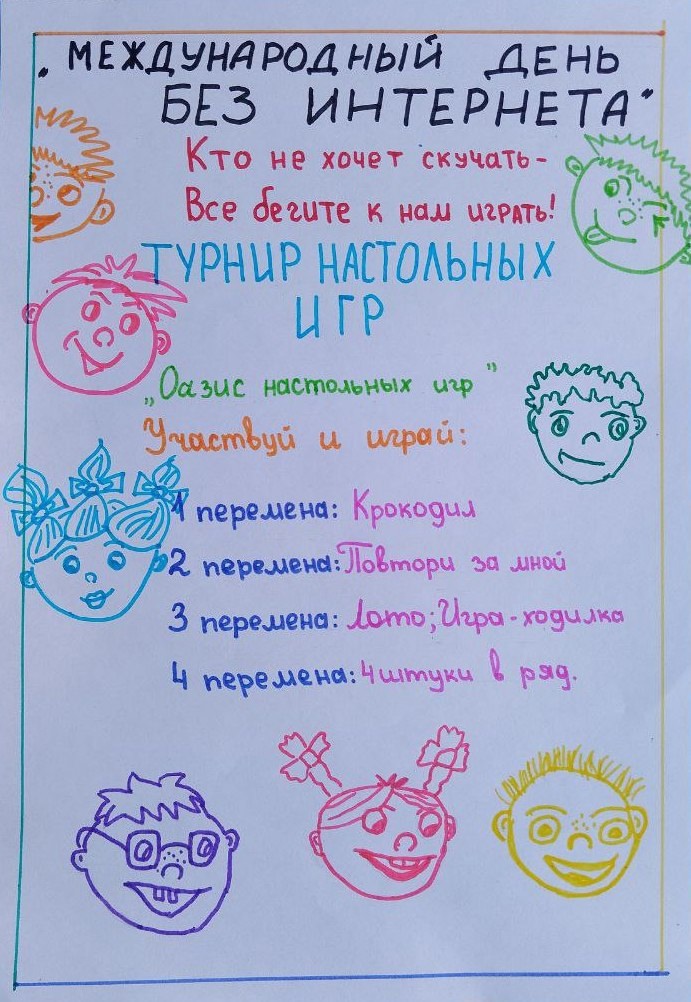 „МЕЖДУНАРОДНЫЙ ДЕНЬ
БЕЗ ИНТЕРНЕТА"
Кто не хочет скучать-
Все бегите к нам играть!
ТУРНИР НАСТОЛЬНЫХ
ИГР
„Оазис настольных игр"
Участвуй и играй:
1 перемена: Крокодил
2 перемена: Повтори за мной
3 перемена: Лото; Игра-ходилка
4 перемена: 4 штуки в ряд.